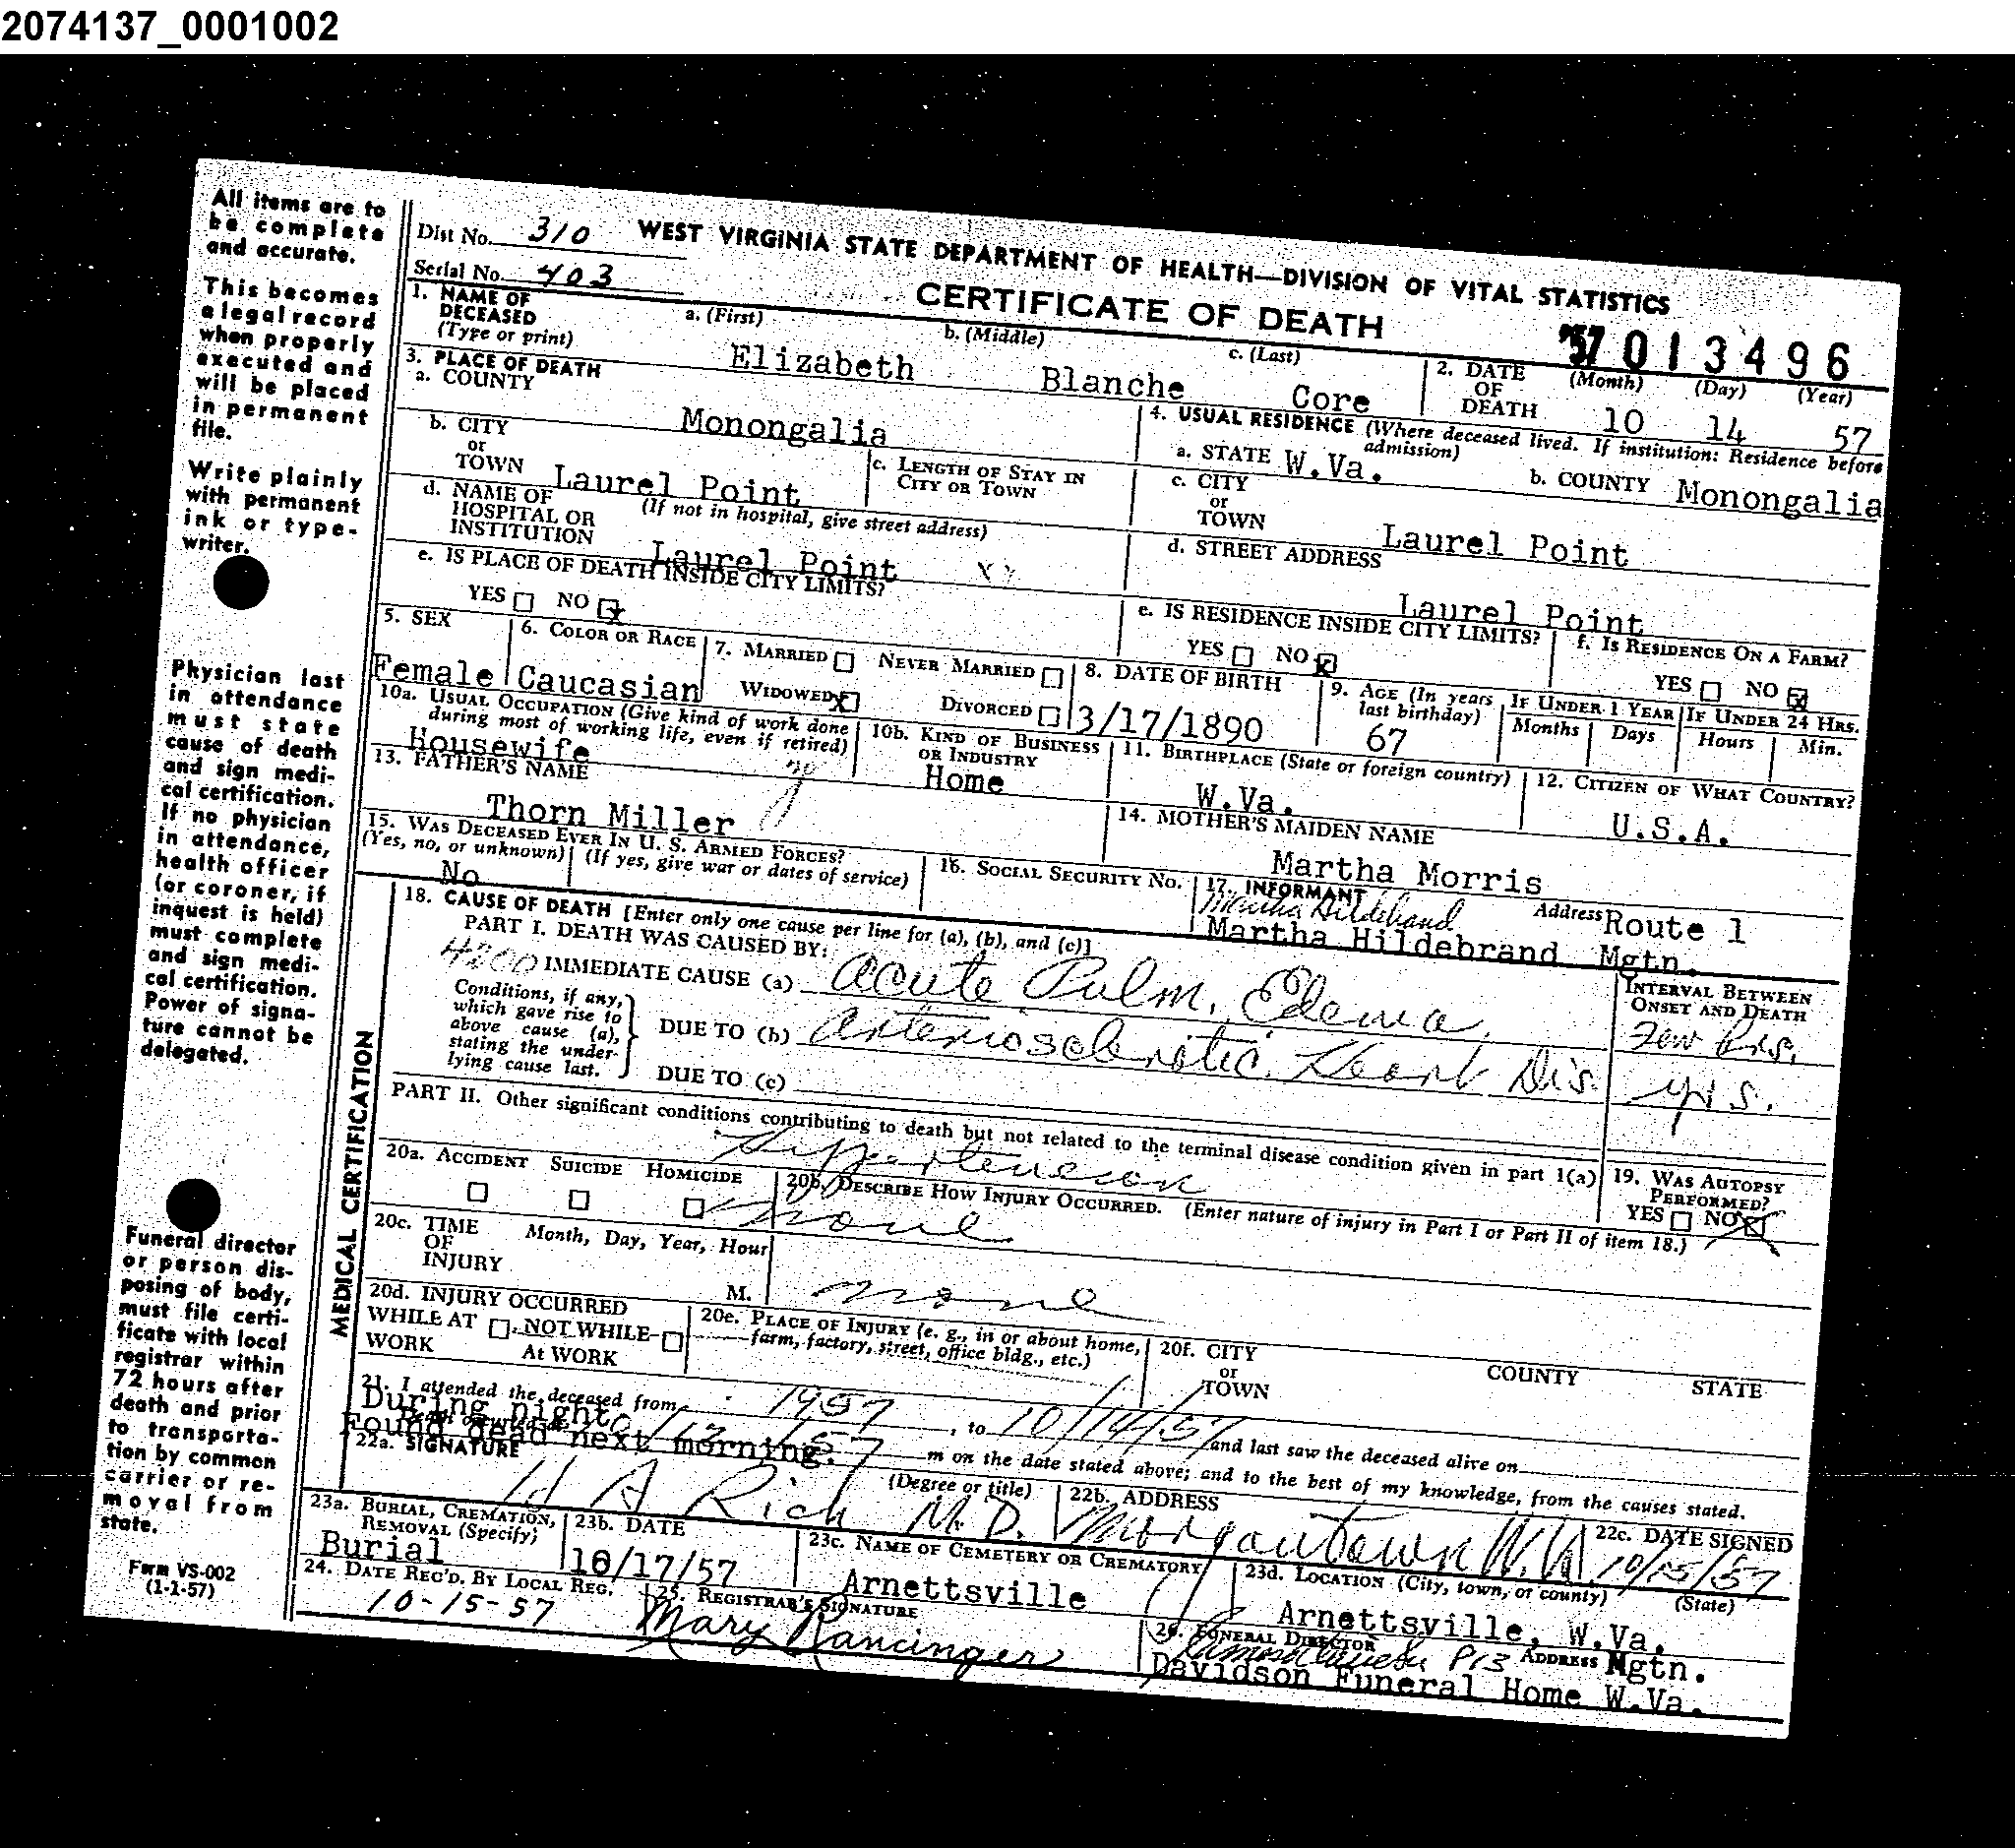 2074137_0001002
All items are to
be complete
and accurate.
This becomes
a legal record
when properly
executed and
will be placed
in permanent
file.
Write plainly
with permanent
ink or type-
writer.
Physician last
in attendance
must state
cause of death
and sign medi-
cal certification.
If no physician
in attendance,
health officer
(or coroner, if
inquest is held)
must complete
and sign medi-
cal certification.
Power of signa-
ture cannot be
delegated.
Funeral director
or person dis-
posing of body,
must file certi-
ficate with local
registrar within
72 hours after
death and prior
to transporta-
tion by common
carrier or re-
moval from
state.
Form VS-002
(1-1-57)
Dist No. 310 WEST VIRGINIA STATE DEPARTMENT OF HEALTH—DIVISION OF VITAL STATISTICS
Serial No. 403 CERTIFICATE OF DEATH
57 013496
1. NAME OF DECEASED (Type or print) a. (First) b. (Middle) c. (Last)
Elizabeth Blanche Core
2. DATE OF DEATH (Month) (Day) (Year)
10 14 57
3. PLACE OF DEATH
a. COUNTY Monongalia
4. USUAL RESIDENCE (Where deceased lived. If institution: Residence before admission)
a. STATE W.Va. b. COUNTY Monongalia
b. CITY or TOWN Laurel Point
c. LENGTH OF STAY IN CITY OR TOWN
c. CITY or TOWN Laurel Point
d. NAME OF HOSPITAL OR INSTITUTION (If not in hospital, give street address)
Laurel Point
d. STREET ADDRESS
Laurel Point
e. IS PLACE OF DEATH INSIDE CITY LIMITS?
YES NO X
e. IS RESIDENCE INSIDE CITY LIMITS?
YES NO X
f. IS RESIDENCE ON A FARM?
YES NO X
5. SEX
Female
6. COLOR OR RACE
Caucasian
7. MARRIED NEVER MARRIED
WIDOWED X DIVORCED
8. DATE OF BIRTH
3/17/1890
9. AGE (In years last birthday)
67
IF UNDER 1 YEAR
Months Days
IF UNDER 24 HRS.
Hours Min.
10a. USUAL OCCUPATION (Give kind of work done during most of working life, even if retired)
Housewife
10b. KIND OF BUSINESS OR INDUSTRY
Home
11. BIRTHPLACE (State or foreign country)
W.Va.
12. CITIZEN OF WHAT COUNTRY?
U.S.A.
13. FATHER'S NAME
Thorn Miller
14. MOTHER'S MAIDEN NAME
Martha Morris
15. WAS DECEASED EVER IN U. S. ARMED FORCES?
(Yes, no, or unknown) (If yes, give war or dates of service)
No
16. SOCIAL SECURITY No.
17. INFORMANT Address
Martha Hildebrand
Martha Hildebrand Route 1 Mgtn.
MEDICAL CERTIFICATION
18. CAUSE OF DEATH [Enter only one cause per line for (a), (b), and (c)]
PART I. DEATH WAS CAUSED BY:
4200 IMMEDIATE CAUSE (a) Acute Pulm. Edema
INTERVAL BETWEEN ONSET AND DEATH
Few hrs.
Conditions, if any, which gave rise to above cause (a), stating the under-lying cause last.
DUE TO (b) Arteriosclerotic Heart Dis. yrs.
DUE TO (c)
PART II. Other significant conditions contributing to death but not related to the terminal disease condition given in part 1(a)
Hypertension
19. WAS AUTOPSY PERFORMED?
YES NO X
20a. ACCIDENT SUICIDE HOMICIDE
20b. DESCRIBE HOW INJURY OCCURRED. (Enter nature of injury in Part I or Part II of item 18.)
none
20c. TIME OF INJURY Month, Day, Year, Hour
M.
none
20d. INJURY OCCURRED
WHILE AT WORK NOT WHILE At WORK
20e. PLACE OF INJURY (e. g., in or about home, farm, factory, street, office bldg., etc.)
20f. CITY or TOWN COUNTY STATE
21. I attended the deceased from 1957, to 10/14/57 and last saw the deceased alive on
During night
Found dead next morning.
m on the date stated above; and to the best of my knowledge, from the causes stated.
22a. SIGNATURE (Degree or title)
H A Rich M.D.
22b. ADDRESS
Morgantown W.Va.
22c. DATE SIGNED
10/15/57
23a. BURIAL, CREMATION, REMOVAL (Specify)
Burial
23b. DATE
10/17/57
23c. NAME OF CEMETERY OR CREMATORY
Arnettsville
23d. LOCATION (City, town, or county) (State)
Arnettsville, W.Va.
24. DATE REC'D. BY LOCAL REG.
10-15-57
25. REGISTRAR'S SIGNATURE
Mary Rancinger
26. FUNERAL DIRECTOR ADDRESS
Davidson Funeral Home Mgtn. W.Va.